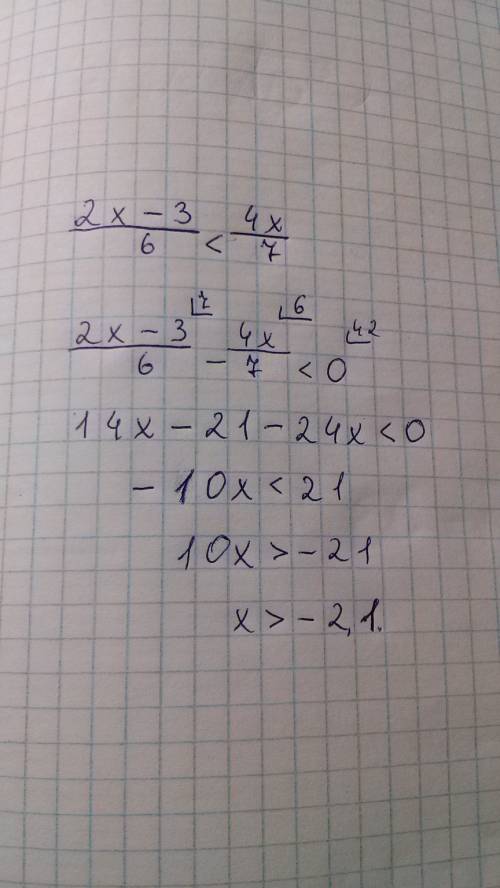 (2x - 3)/6 < 4x/7
(2x - 3)/6 ⌊7 - 4x/7 ⌊6 < 0 ⌊42
14x - 21 - 24x < 0
- 10x < 21
10x > - 21
x > - 2,1.